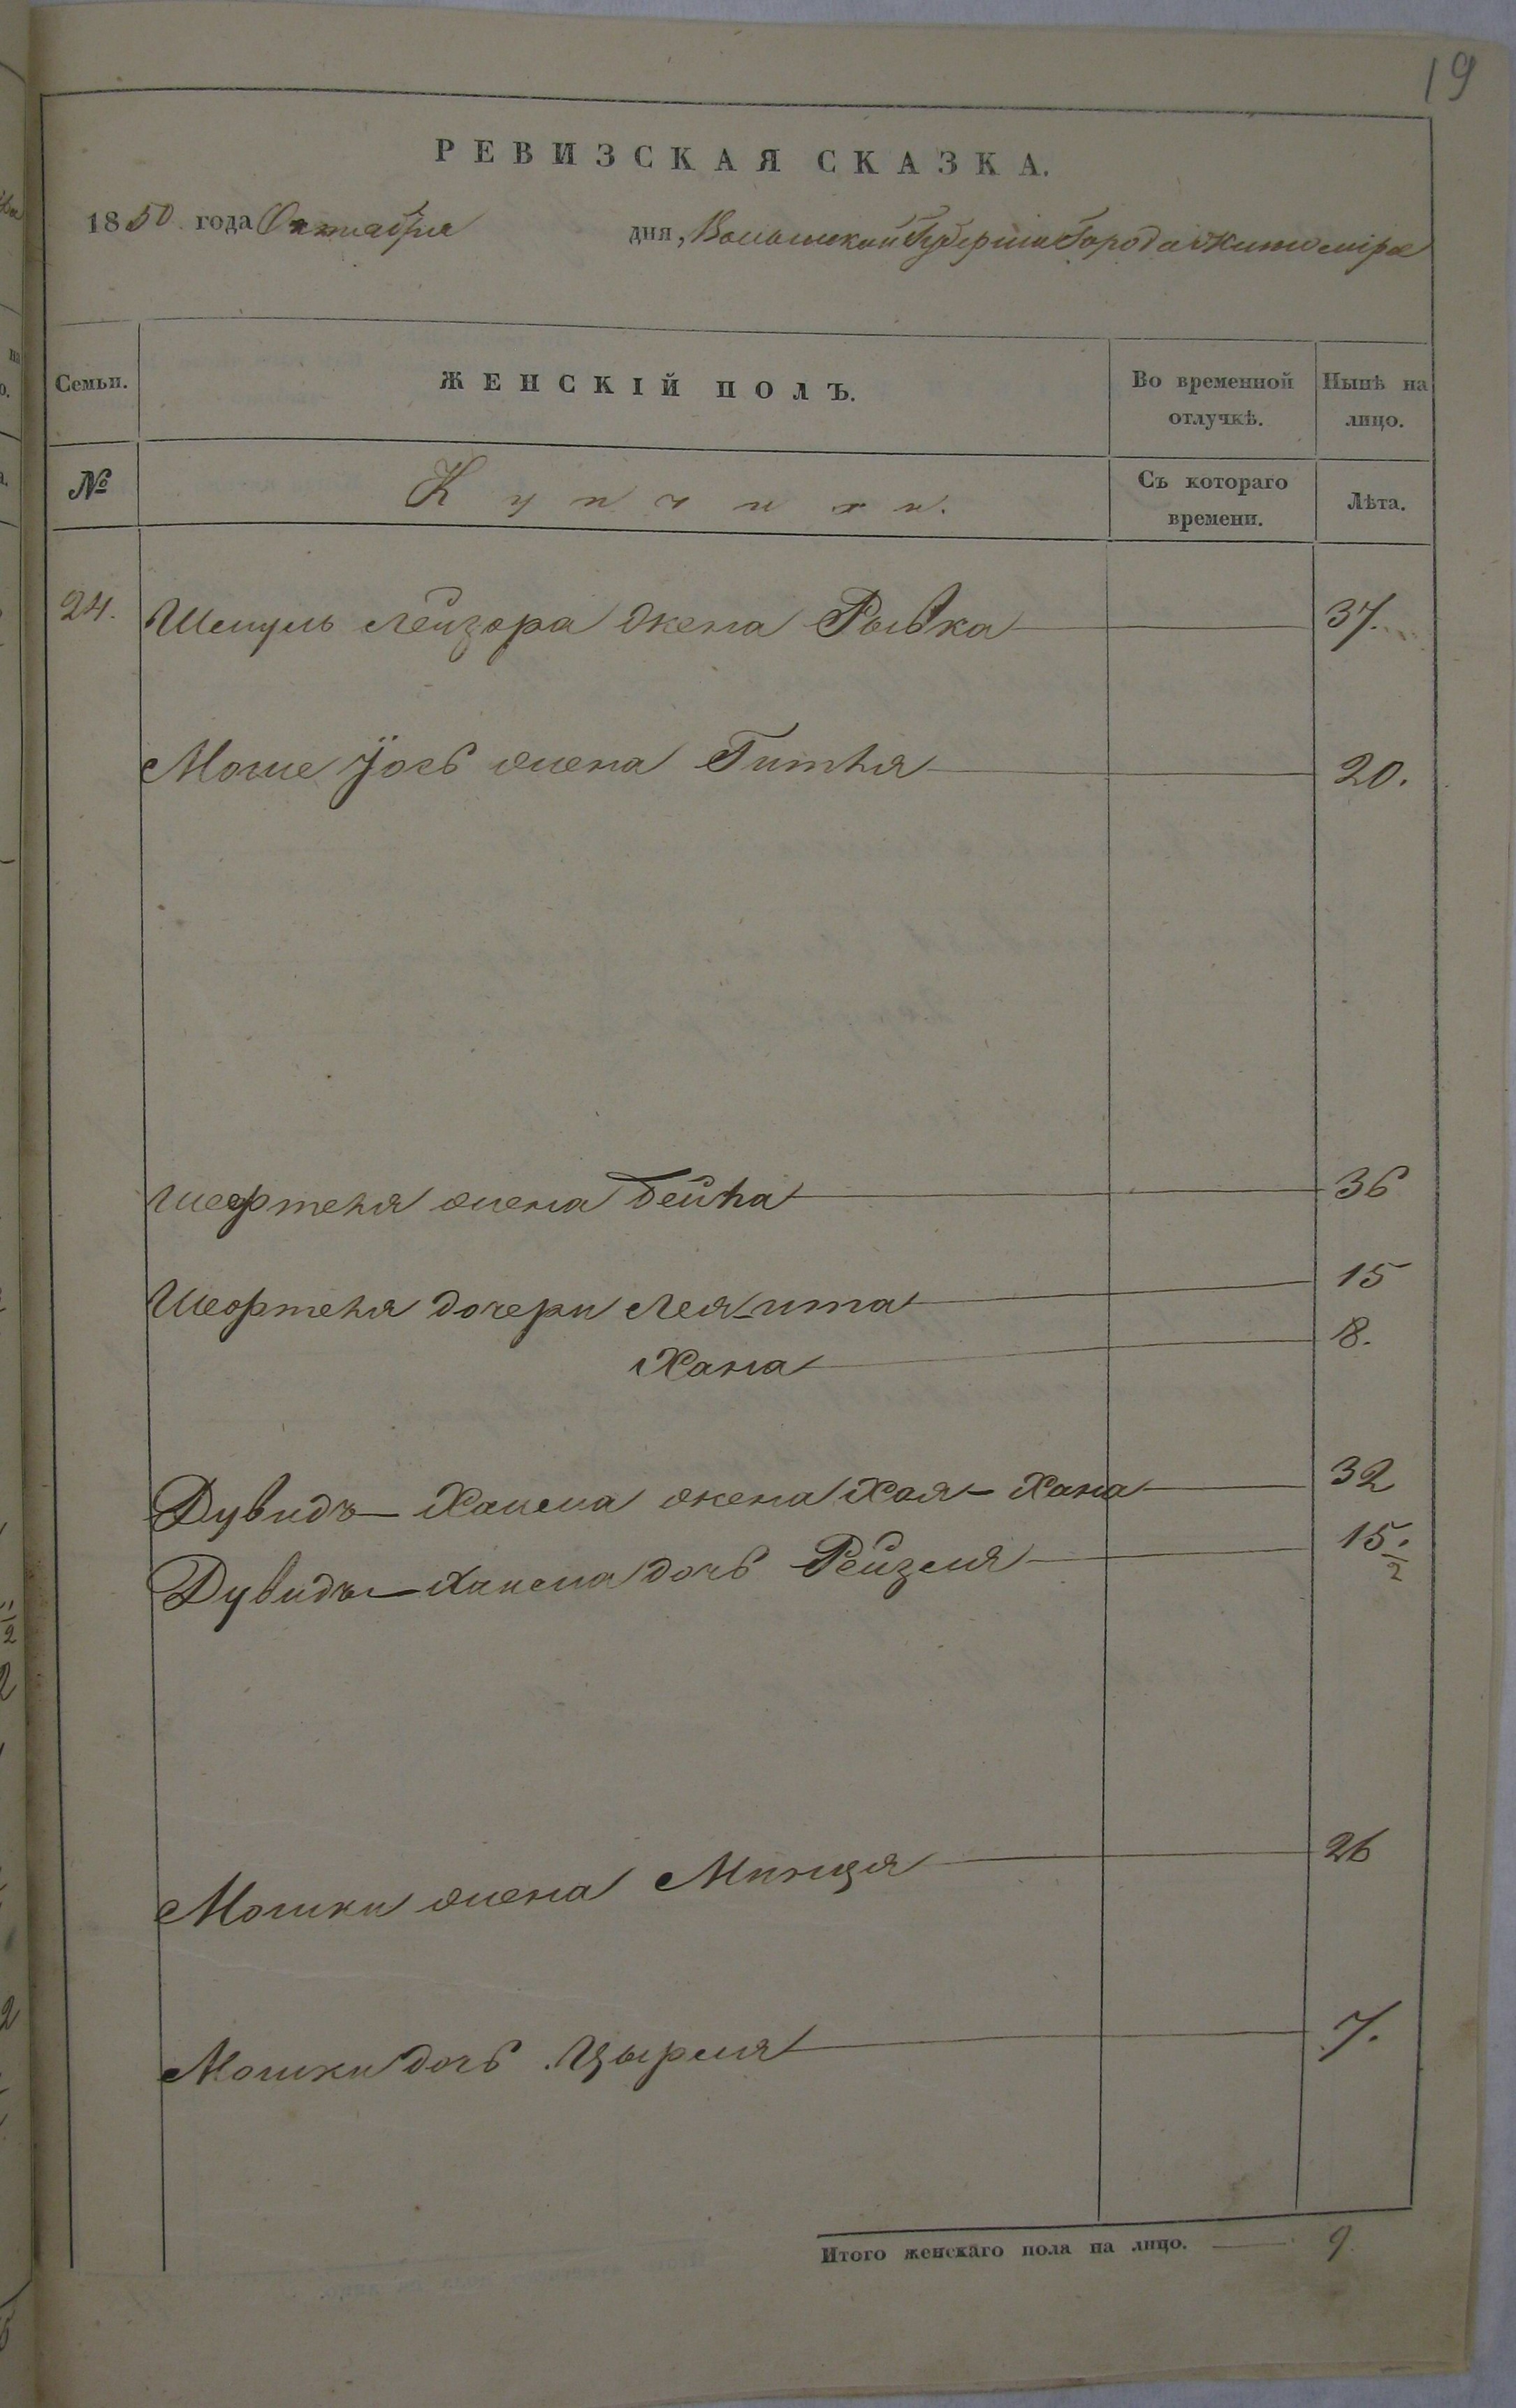 19
РЕВИЗСКАЯ СКАЗКА.
1850 года Октября дня, Волынской Губерніи Города Житоміра
Семьи. ЖЕНСКІЙ ПОЛЪ. Во временной отлучкѣ. Нынѣ на лицо.
№ Купчихи. Съ котораго времени. Лѣта.
24. Шмуль Лейзора жена Рывка 37.
Моше Іось жена Гитля 20.
жена Бейла 36
дочери Лея-ита 15
Хана 8.
Дувидъ-Хаиема жена Хая-Хана 32
Дувидъ-Хаиема дочь Рейзля 15. 1/2
Мошки жена Минця 26
Мошки дочь Цырля 7.
Итого женскаго пола на лицо. 9.